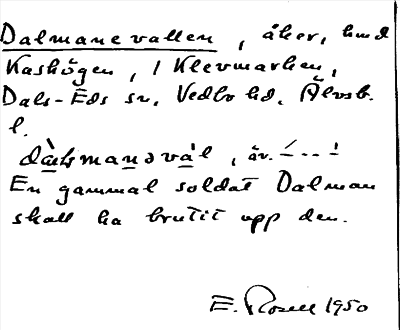 Dalmanevallen, åker, hmd
Kashögen, 1 Klevmarken,
Dals-Eds sn, Vedbo hd, Älvsb.
l.
dàlsmanəvàl, äv. ́ - . . - ̀
En gammal soldat Dalman
skall ha brutit upp den.
E. Rosell 1950